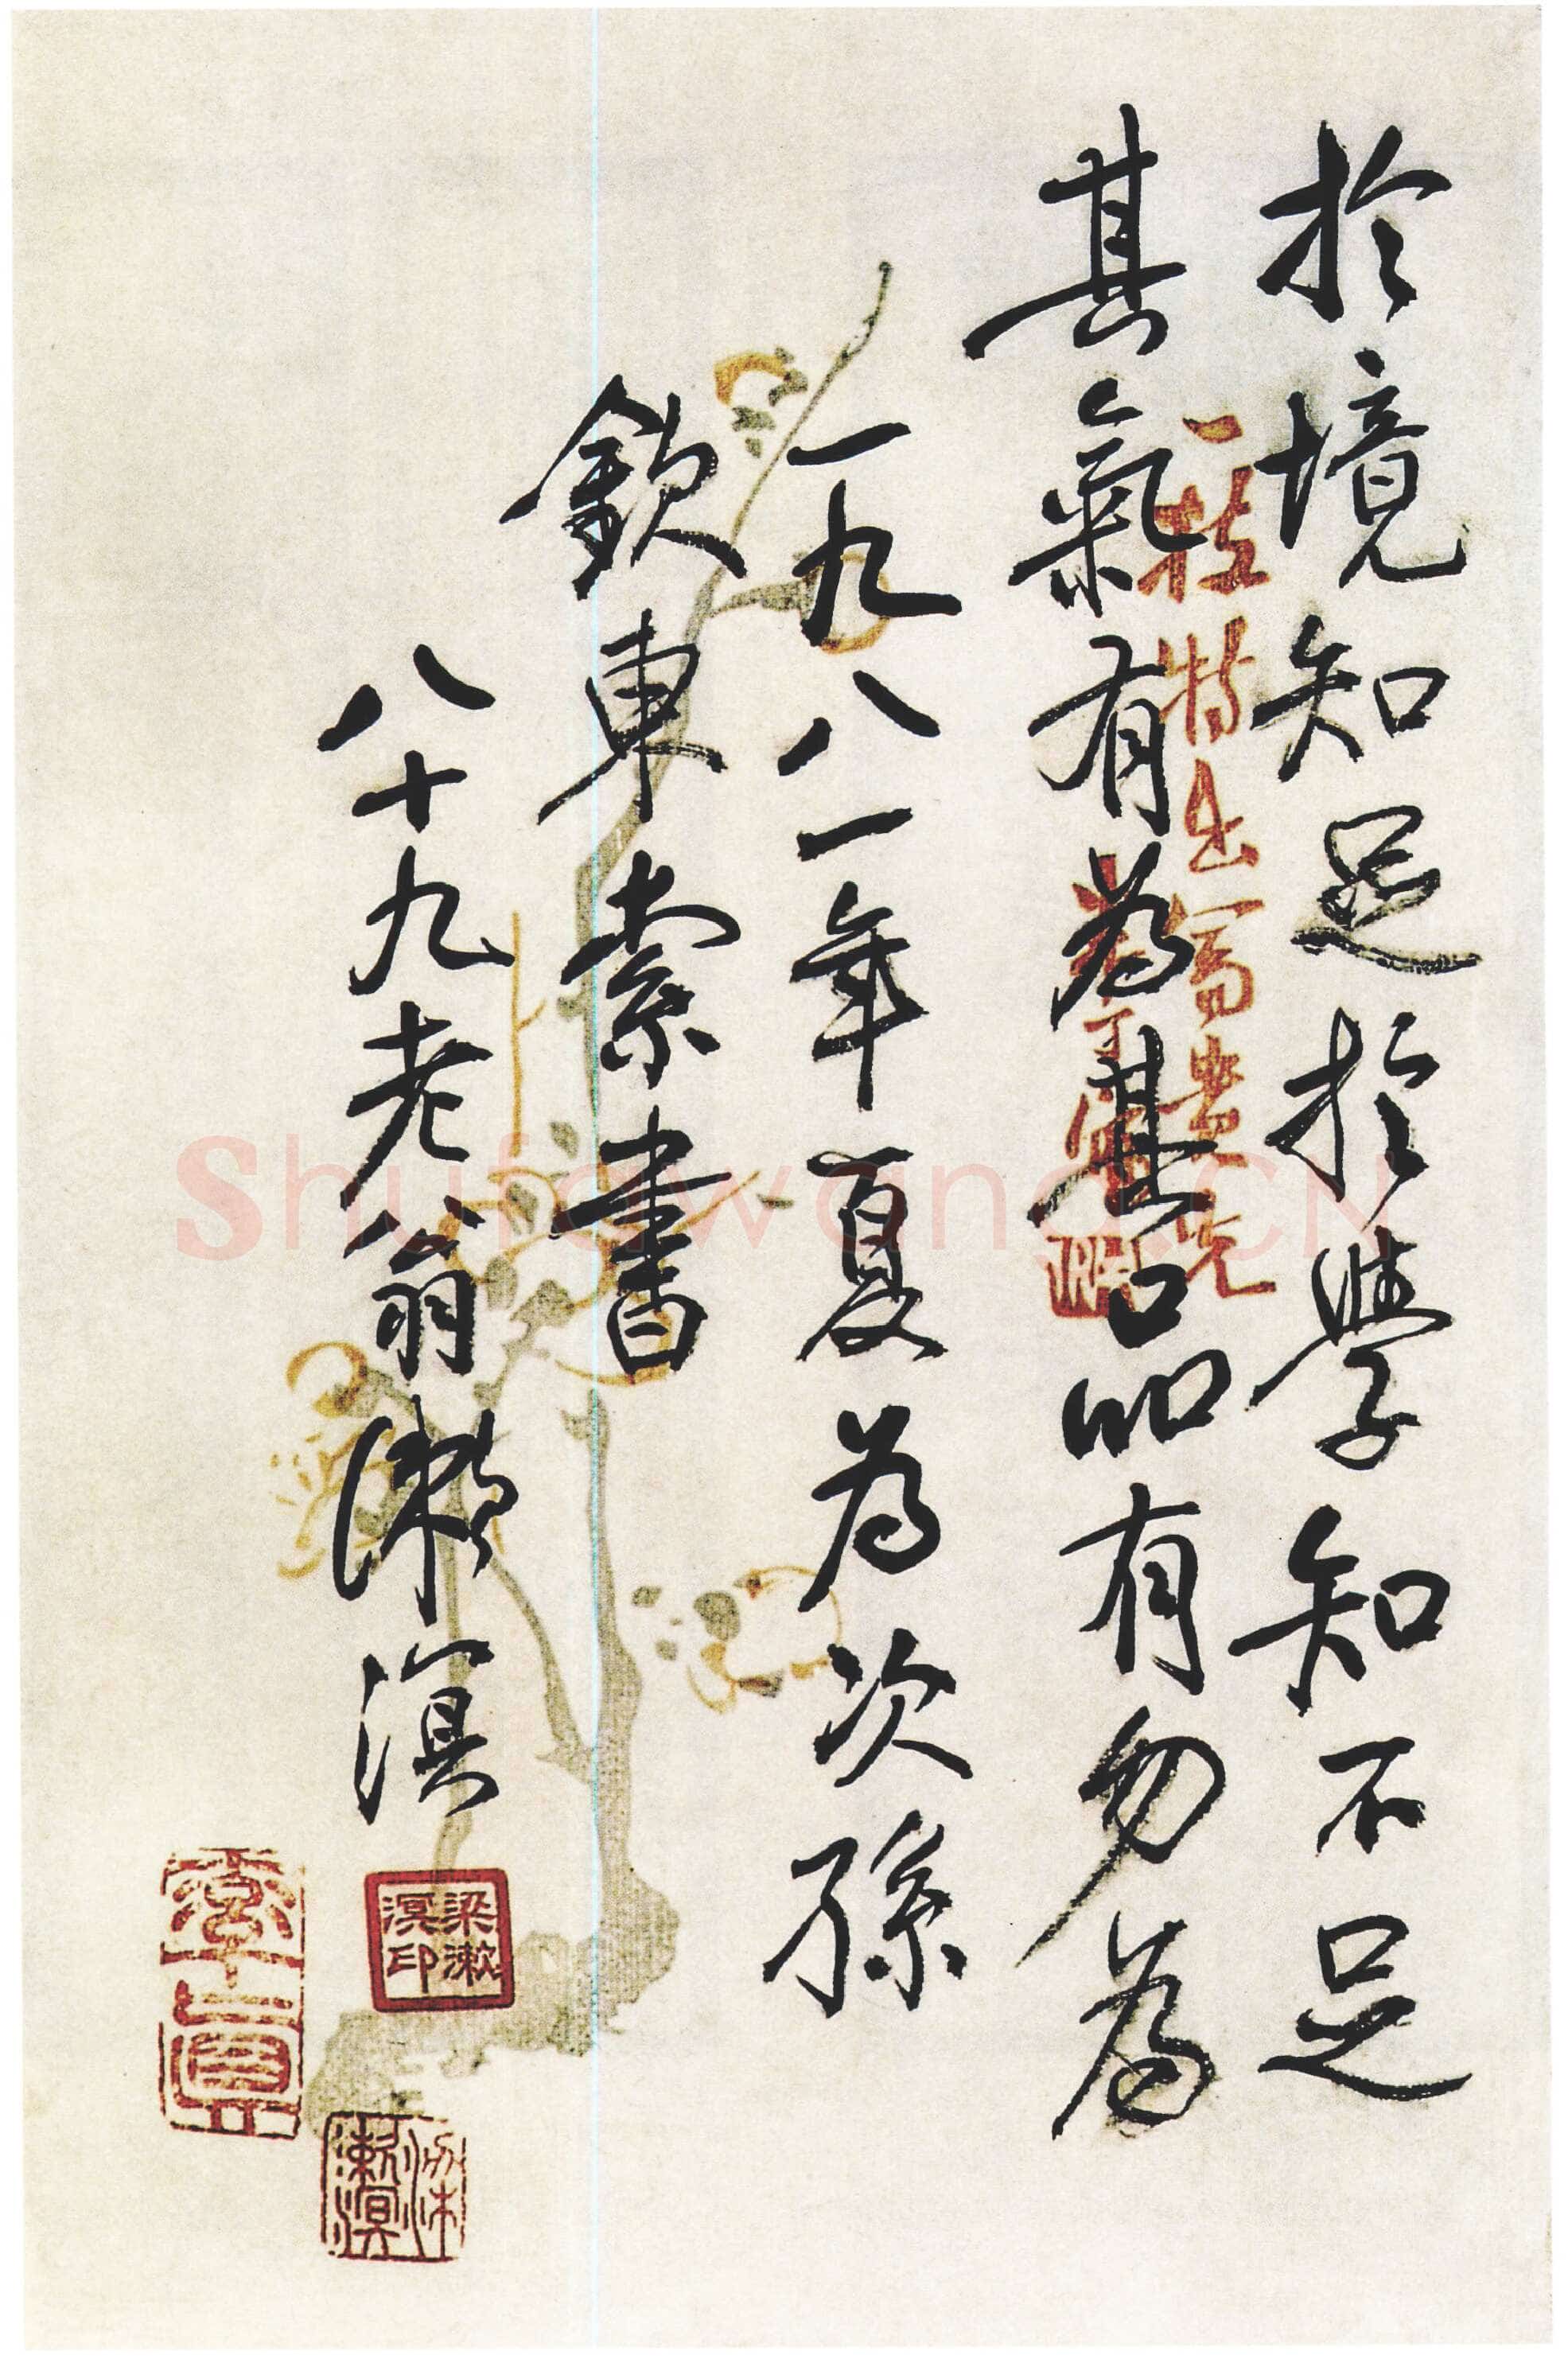 於境知足於學知不足
其氣有為其品有勿為
一九八一年夏為次孫
欽東索書
八十九老翁漱溟
梁漱溟印
梁漱溟
一枝特出
Shufawang.CN